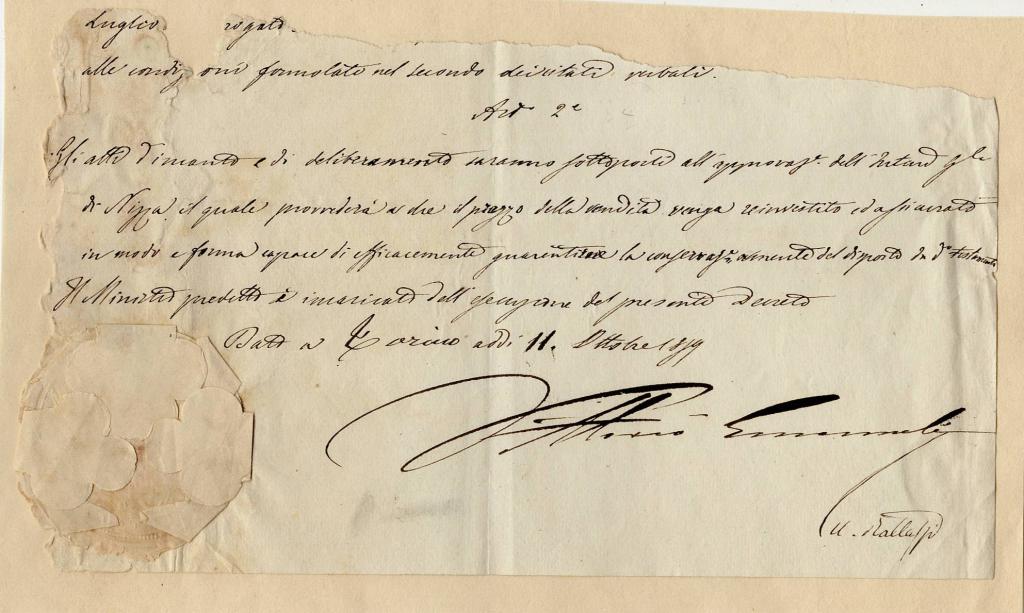 Luglio rogato.
alle condizioni formolate nel secondo dei citati verbali.
Art 2e
Gli atti d'incanto e di deliberamento saranno sottoposti all'approvaze. dell'Intend Gle
di Nizza il quale provvederà a che il prezzo della vendita venga reinvestito ed assicurato
in modo e forma capace di efficacemente guarentire la conservaze. del disposto da do. testamento
Il Ministro predetto è incaricato dell'esecuzione del presente Decreto
Dato a Torino addì 11. Ottobre 1859
Vittorio Emanuele
U. Rattazzi